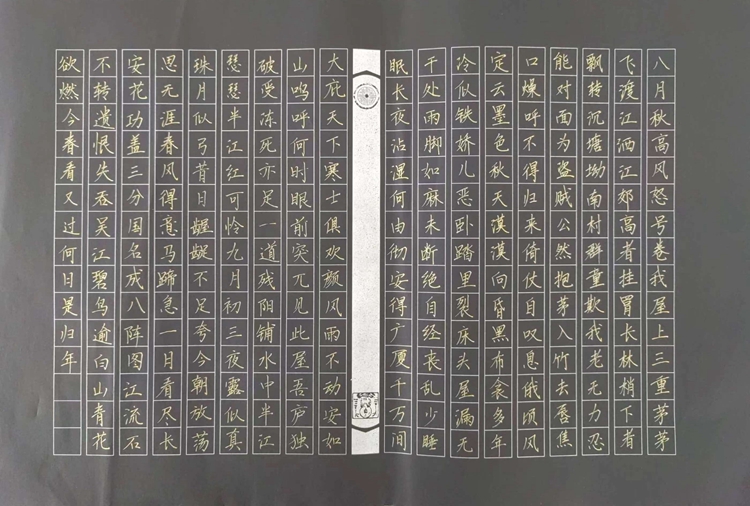 八月秋高风怒号卷我屋上三重茅茅
飞渡江洒江郊高者挂罥长林梢下者
飘转沉塘坳南村群童欺我老无力忍
能对面为盗贼公然抱茅入竹去唇焦
口燥呼不得归来倚仗自叹息俄顷风
定云墨色秋天漠漠向昏黑布衾多年
冷似铁娇儿恶卧踏里裂床头屋漏无
干处雨脚如麻未断绝自经丧乱少睡
眠长夜沾湿何由彻安得广厦千万间
大庇天下寒士俱欢颜风雨不动安如
山鸣呼何时眼前突兀见此屋吾庐独
破受冻死亦足一道残阳铺水中半江
瑟瑟半江红可怜九月初三夜露似真
珠月似弓昔日龌龊不足夸今朝放荡
思无涯春风得意马蹄急一日看尽长
安花功盖三分国名成八阵图江流石
不转遗恨失吞吴江碧鸟逾白山青花
欲燃今春看又过何日是归年